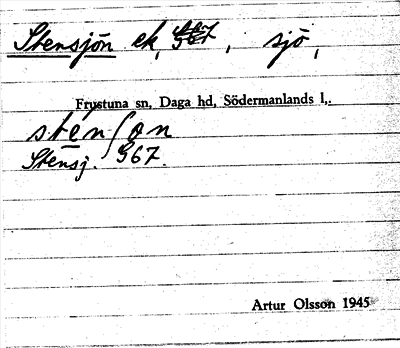 Stensjön ek, G67, sjö,
Frustuna sn, Daga hd, Södermanlands l.
stenʃon
Stensj. G67.
Artur Olsson 1945